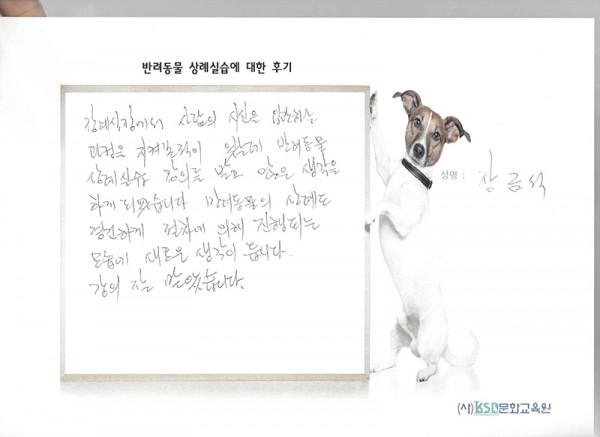 반려동물 상례실습에 대한 후기
장례식장에서 사람의 시신을 입관하는
과정은 지켜본적이 있는데 반려동물
상례실습 강의를 받고 많은 생각을
하게 되었습니다 반려동물의 상례도
경건하게 절차에 의해 진행되는
모습에 새로운 생각이 듭니다.
강의 잘 받았습니다.
성명 : 상금석
(사)KSD문화교육원